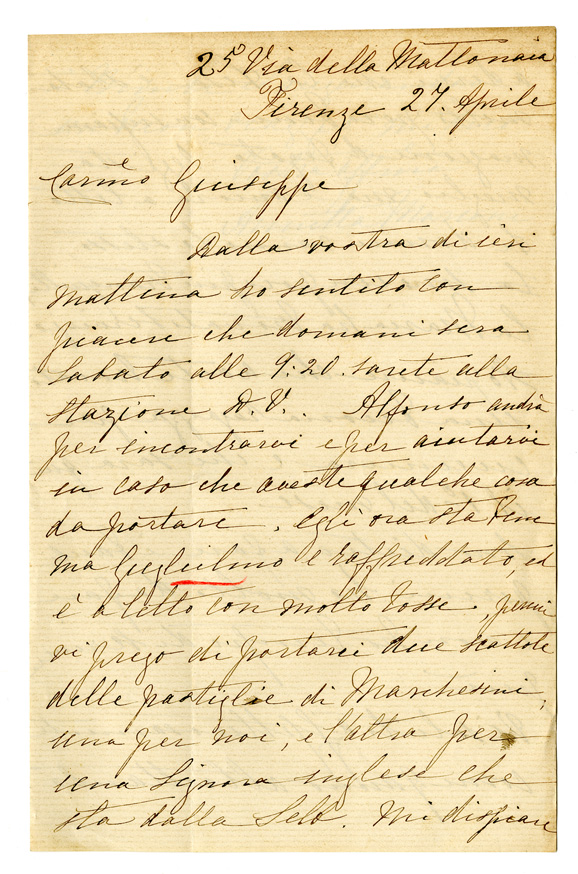 25 Via della Mattonaia
Firenze 27. Aprile
Carm̃o Giuseppe
Dalla vostra di ieri
Mattina ho sentito con
piacere che domani sera
Sabato alle 9:20. sarete alla
Stazione D.V.. Alfonso andrà
per incontrarvi e per aiutarvi
in caso che aveste qualche cosa
da portare. egli ora sta bene
ma Guglielmo e raffreddato, ed
è a letto con molto tosse,
vi prego di portarci due scattole
delle pastiglie di Marchesini,
una per noi, e l'altra per
una Signora inglese che
sta dalla Self. Mi dispiace